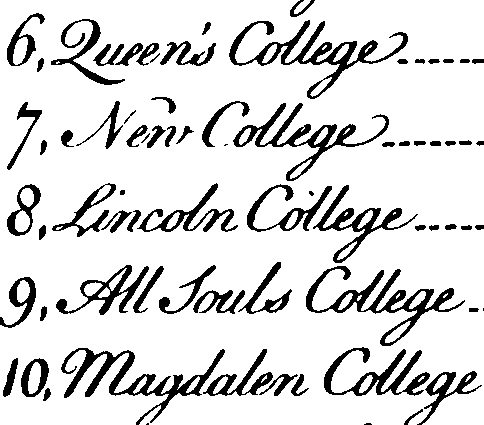 6, Queen's College ------
7, New College ------
8, Lincoln College -----
9, All Souls College --
10, Magdalen College